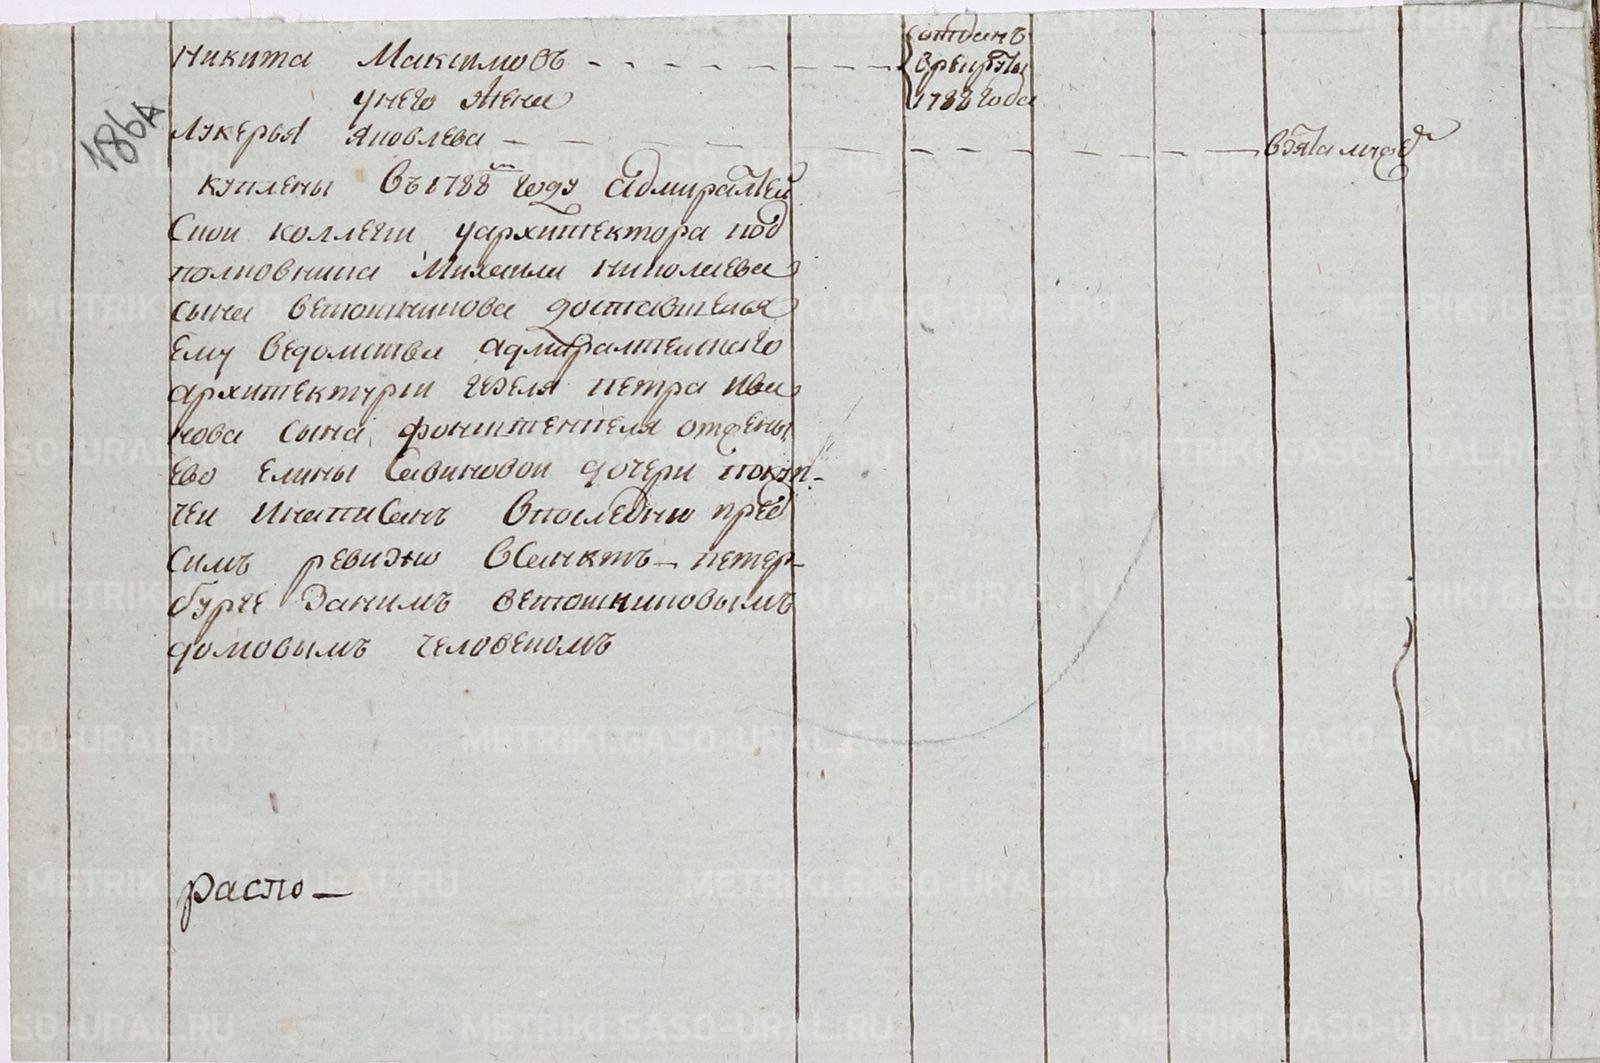 Никита Максимовъ
отданъ
врекруты
1788 года
186А
унего жена
Лукерья Яковлева
взята
куплены въ 1788м году адмиралтей
Скои коллегии уархитектора под
полковника Михаила николаева
сына ветошникова доставшеися
ему ведомства адмиралтеиского
архитектурии гезеля петра ива
нова сына отжены
ево елины Савиновои дочери покуп-
чеи инаписанъ впоследнюю пред
симъ ревизию вСанктъ-петер-
бурге Занимъ ветошниковымъ
домовымъ человекомъ
распо-
METRIKI.GASO-URAL.RU